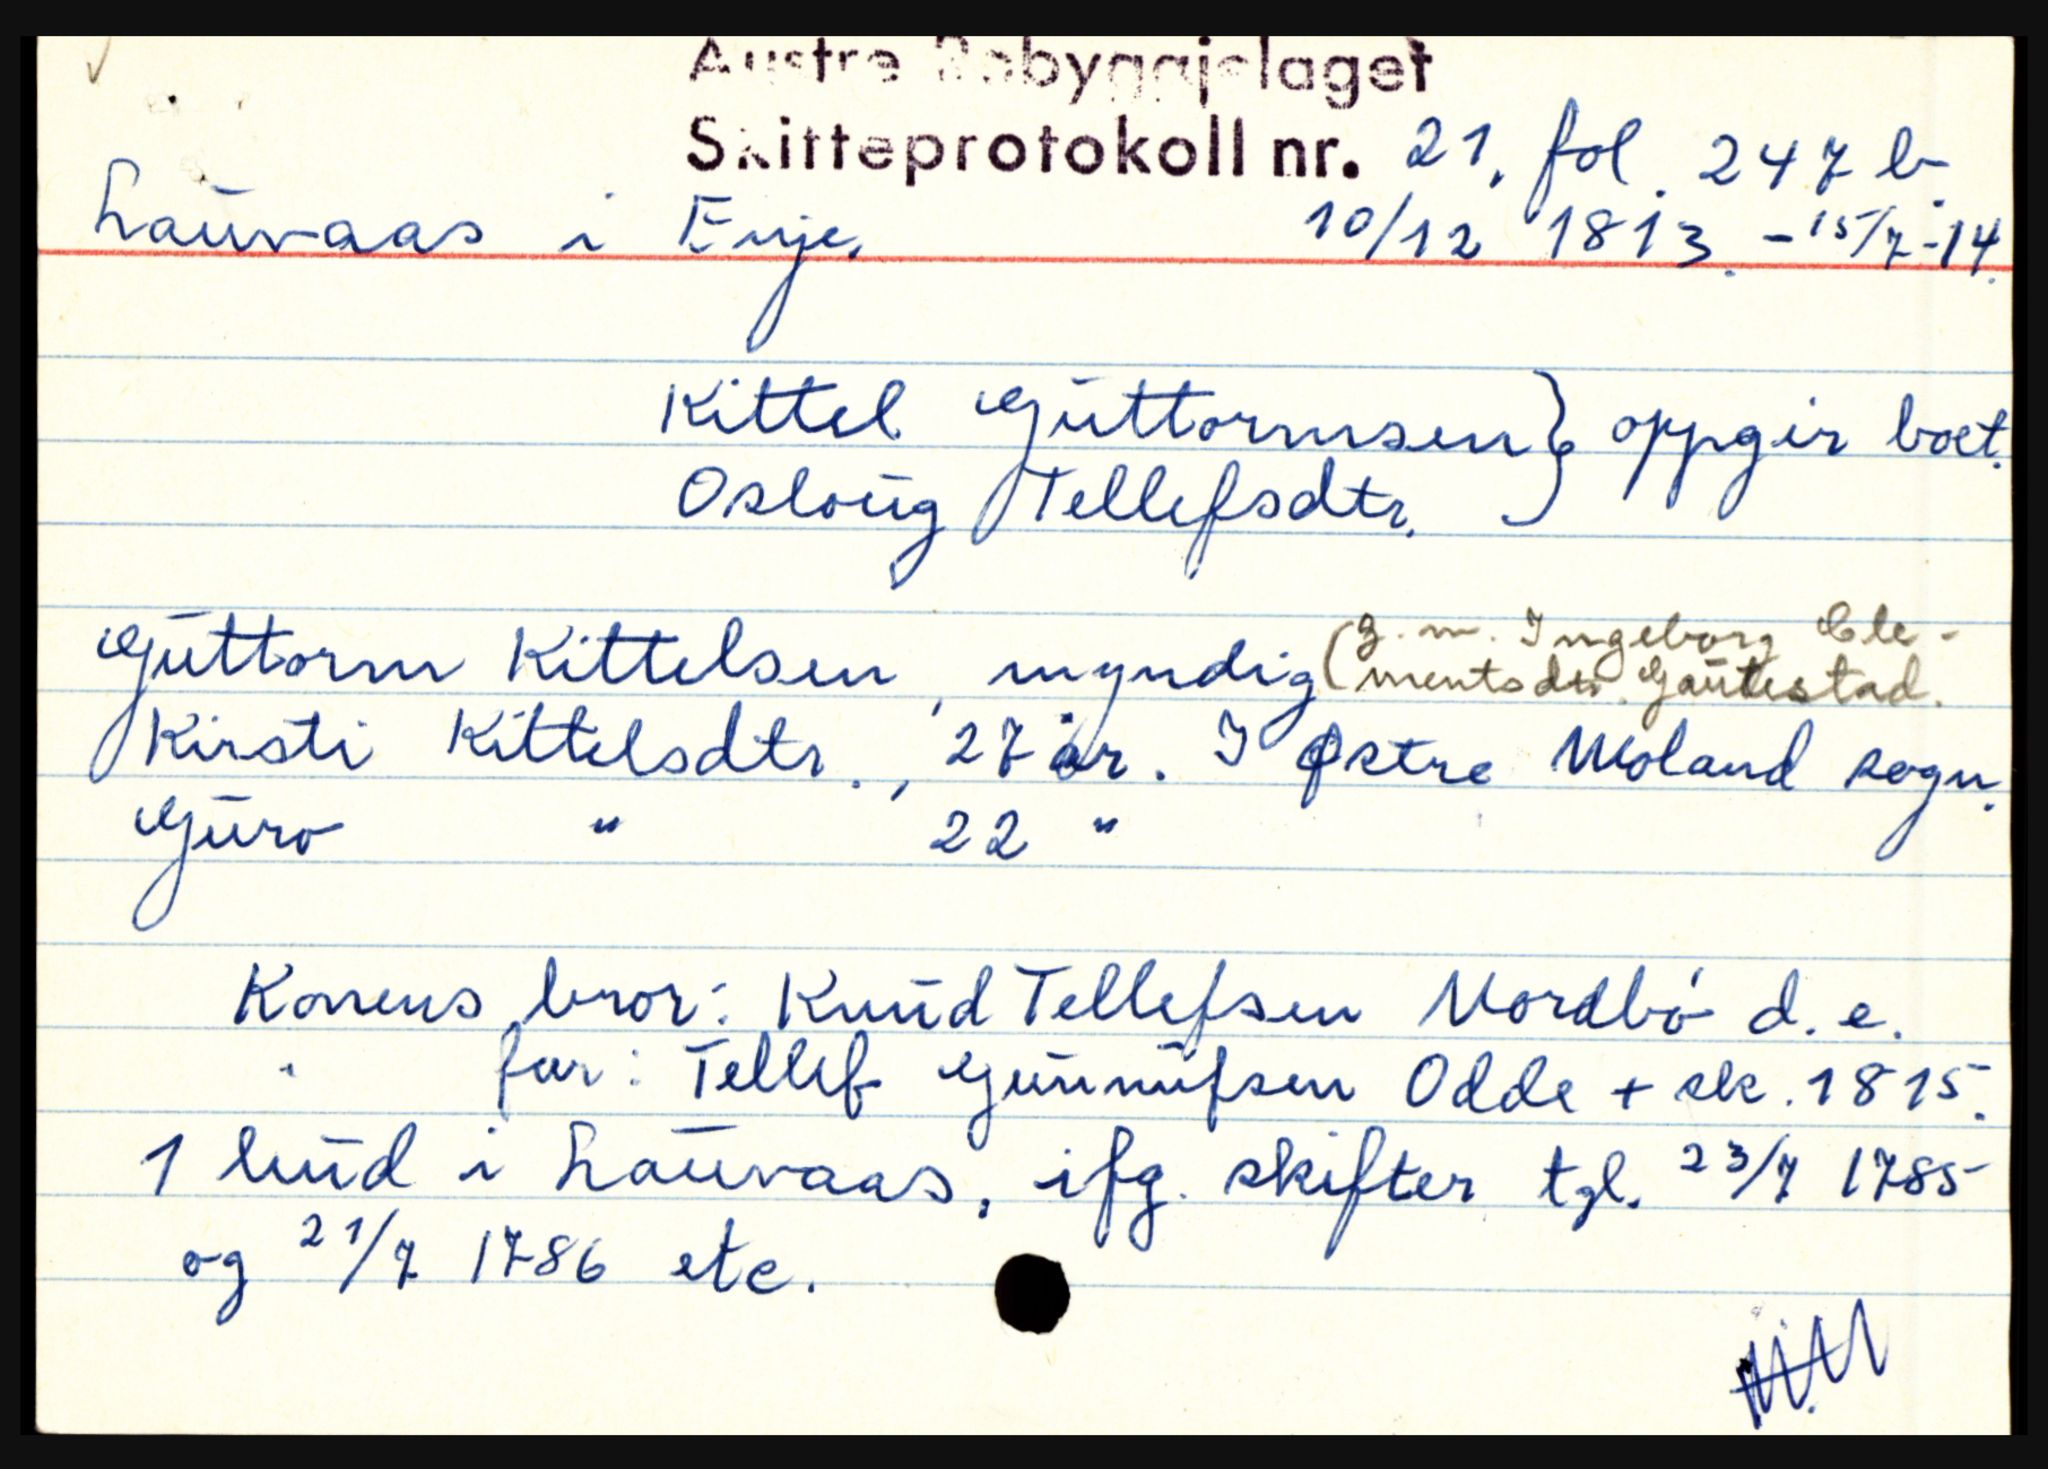 Austre Robyggjelaget
Skifteprotokoll nr. 21, fol. 247 b.
Lauvaas i Evje. 10/12 1813. - 15/7-14.
Kittel Guttormsen } oppgir boet.
Osloug Tellefsdtr.
Guttorm Kittelsen, myndig (g. m. Ingeborg Cle-
mentsdtr. Gautestad.
Kirsti Kittelsdtr., 27 år. I Østre Moland sogn.
Guro " 22 "
Konens bror: Knud Tellefsen Nordbö d. e.
" far: Tellef Gunnufsen Odde + sk. 1815.
1 hud i Lauvaas, ifg. skifter tgl. 23/7 1785
og 21/7 1786 etc.